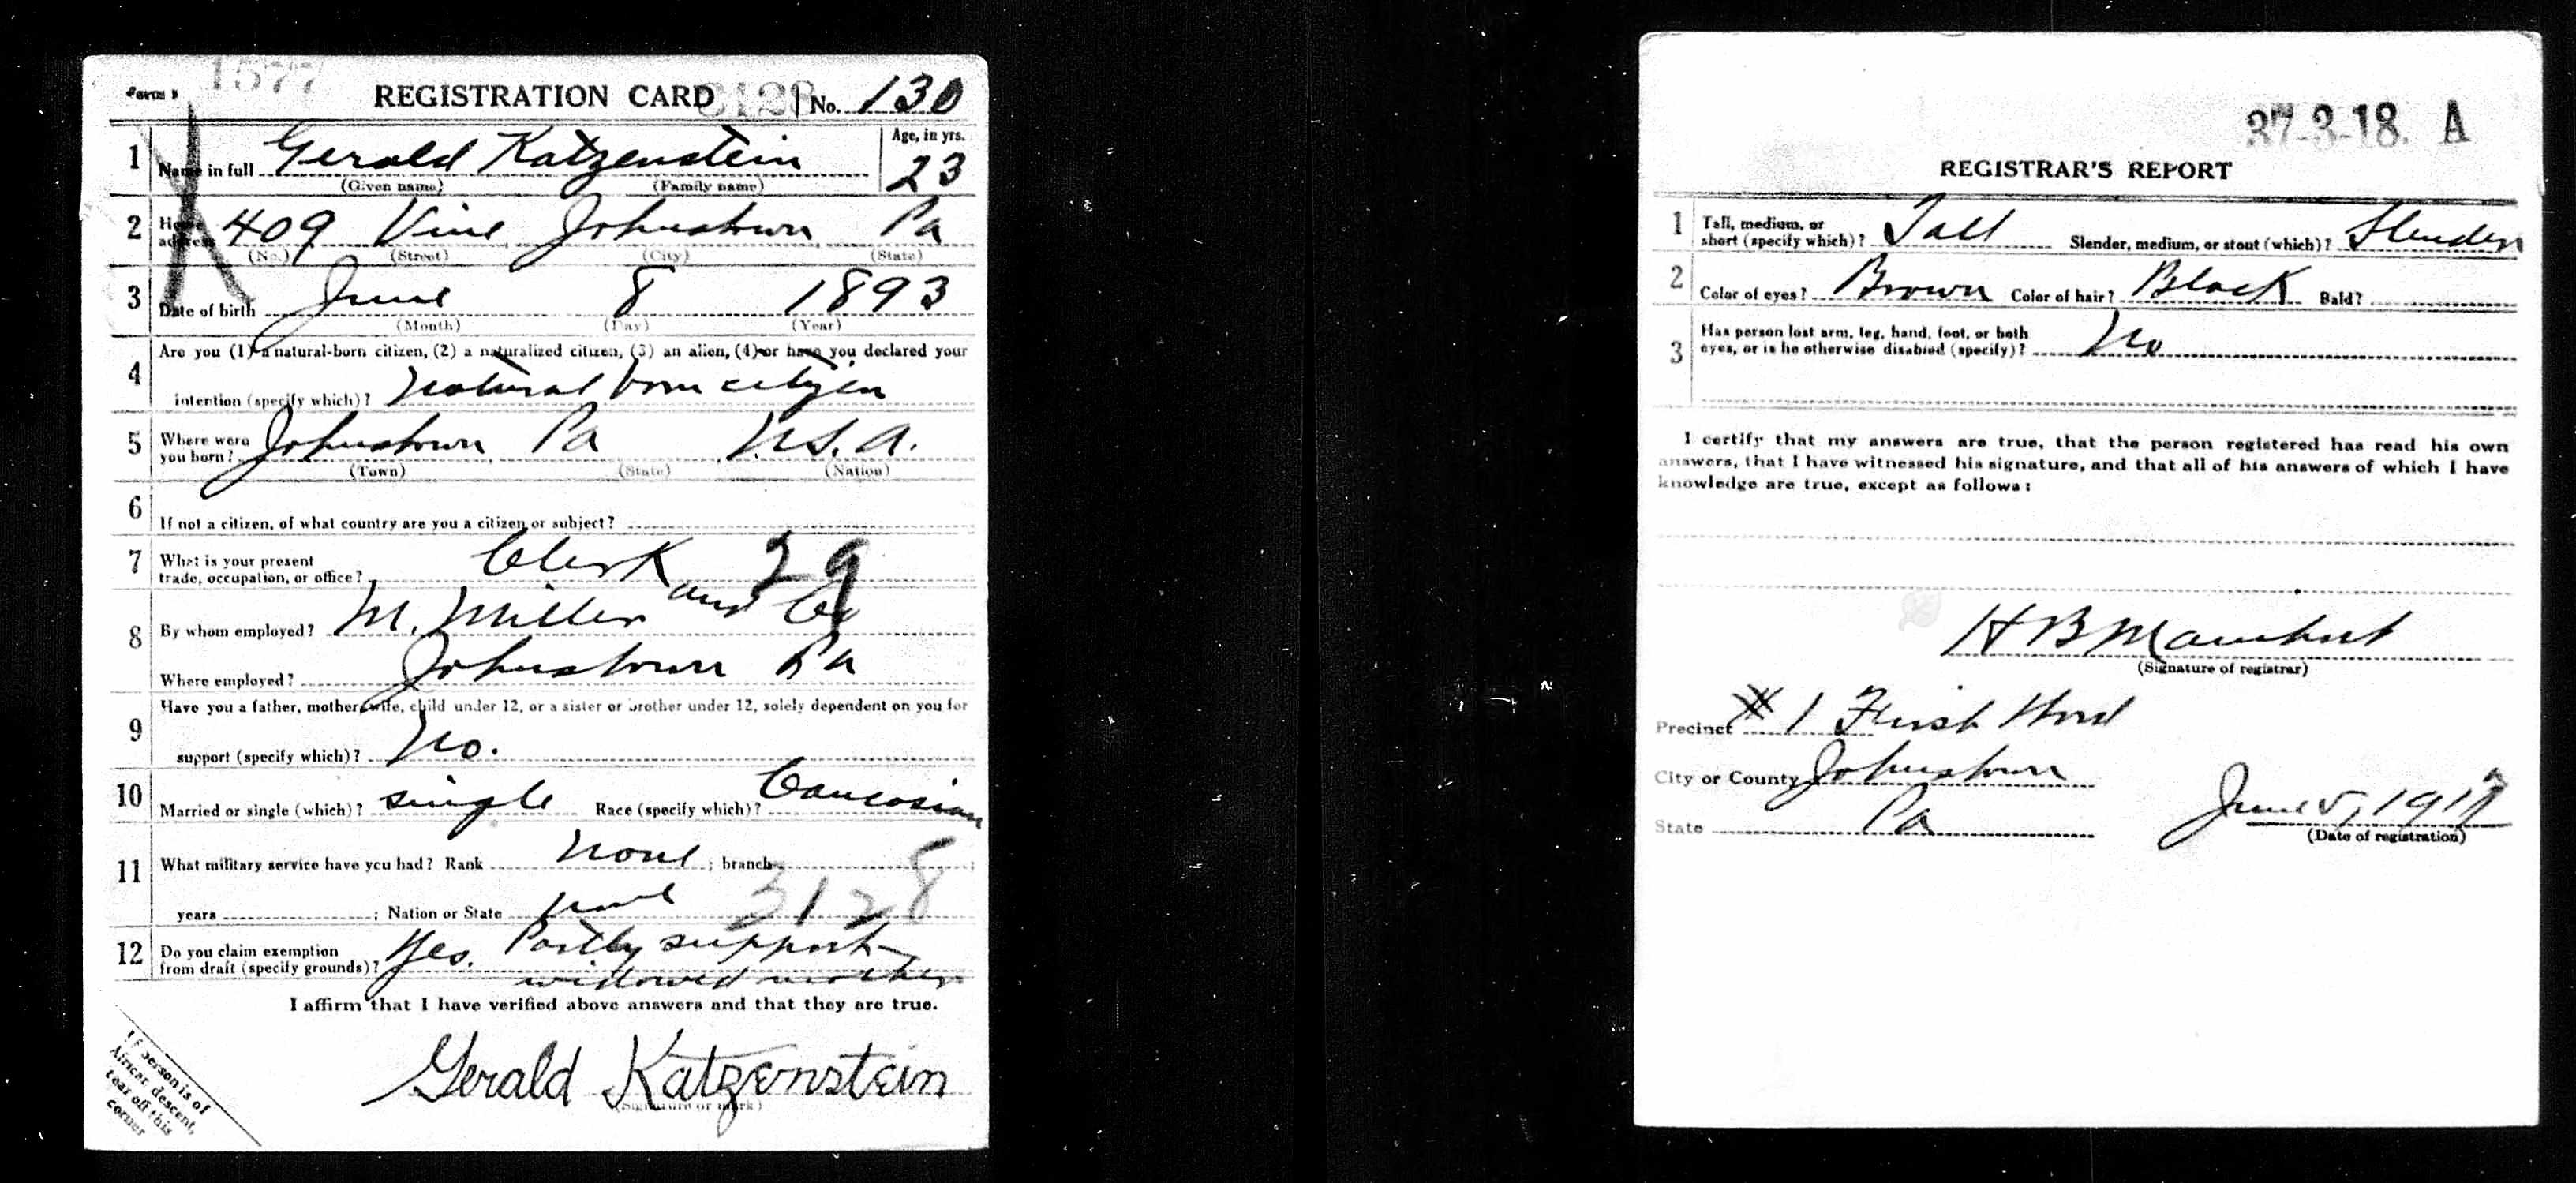 Form 1 1577 REGISTRATION CARD 3128 No. 130
1 Name in full Gerald Katzenstein Age, in yrs. 23
(Given name) (Family name)
2 Home address 409 Vine Johnstown Pa
(No.) (Street) (City) (State)
3 Date of birth June 8 1893
(Month) (Day) (Year)
4 Are you (1) a natural-born citizen, (2) a naturalized citizen, (3) an alien, (4) or have you declared your
intention (specify which)? Natural born citizen
5 Where were you born? Johnstown Pa U.S.A.
(Town) (State) (Nation)
6 If not a citizen, of what country are you a citizen or subject?
7 What is your present
trade, occupation, or office? Clerk 29
8 By whom employed? M. Miller and Co
Where employed? Johnstown Pa
9 Have you a father, mother, wife, child under 12, or a sister or brother under 12, solely dependent on you for
support (specify which)? No.
10 Married or single (which)? single Race (specify which)? Caucasian
11 What military service have you had? Rank None ; branch ;
years ; Nation or State None 3128
12 Do you claim exemption
from draft (specify grounds)? Yes. Partly support
widowed mother
I affirm that I have verified above answers and that they are true.
Gerald Katzenstein
(Signature or mark)
If person is of
African descent,
tear off this
corner
37-3-18. A
REGISTRAR'S REPORT
1 Tall, medium, or
short (specify which)? Tall Slender, medium, or stout (which)? Slender
2 Color of eyes? Brown Color of hair? Black Bald?
3 Has person lost arm, leg, hand, foot, or both
eyes, or is he otherwise disabled (specify)? No
I certify that my answers are true, that the person registered has read his own
answers, that I have witnessed his signature, and that all of his answers of which I have
knowledge are true, except as follows:
H B
(Signature of registrar)
Precinct # 1 First Ward
City or County Johnstown
State Pa June 5, 1917
(Date of registration)